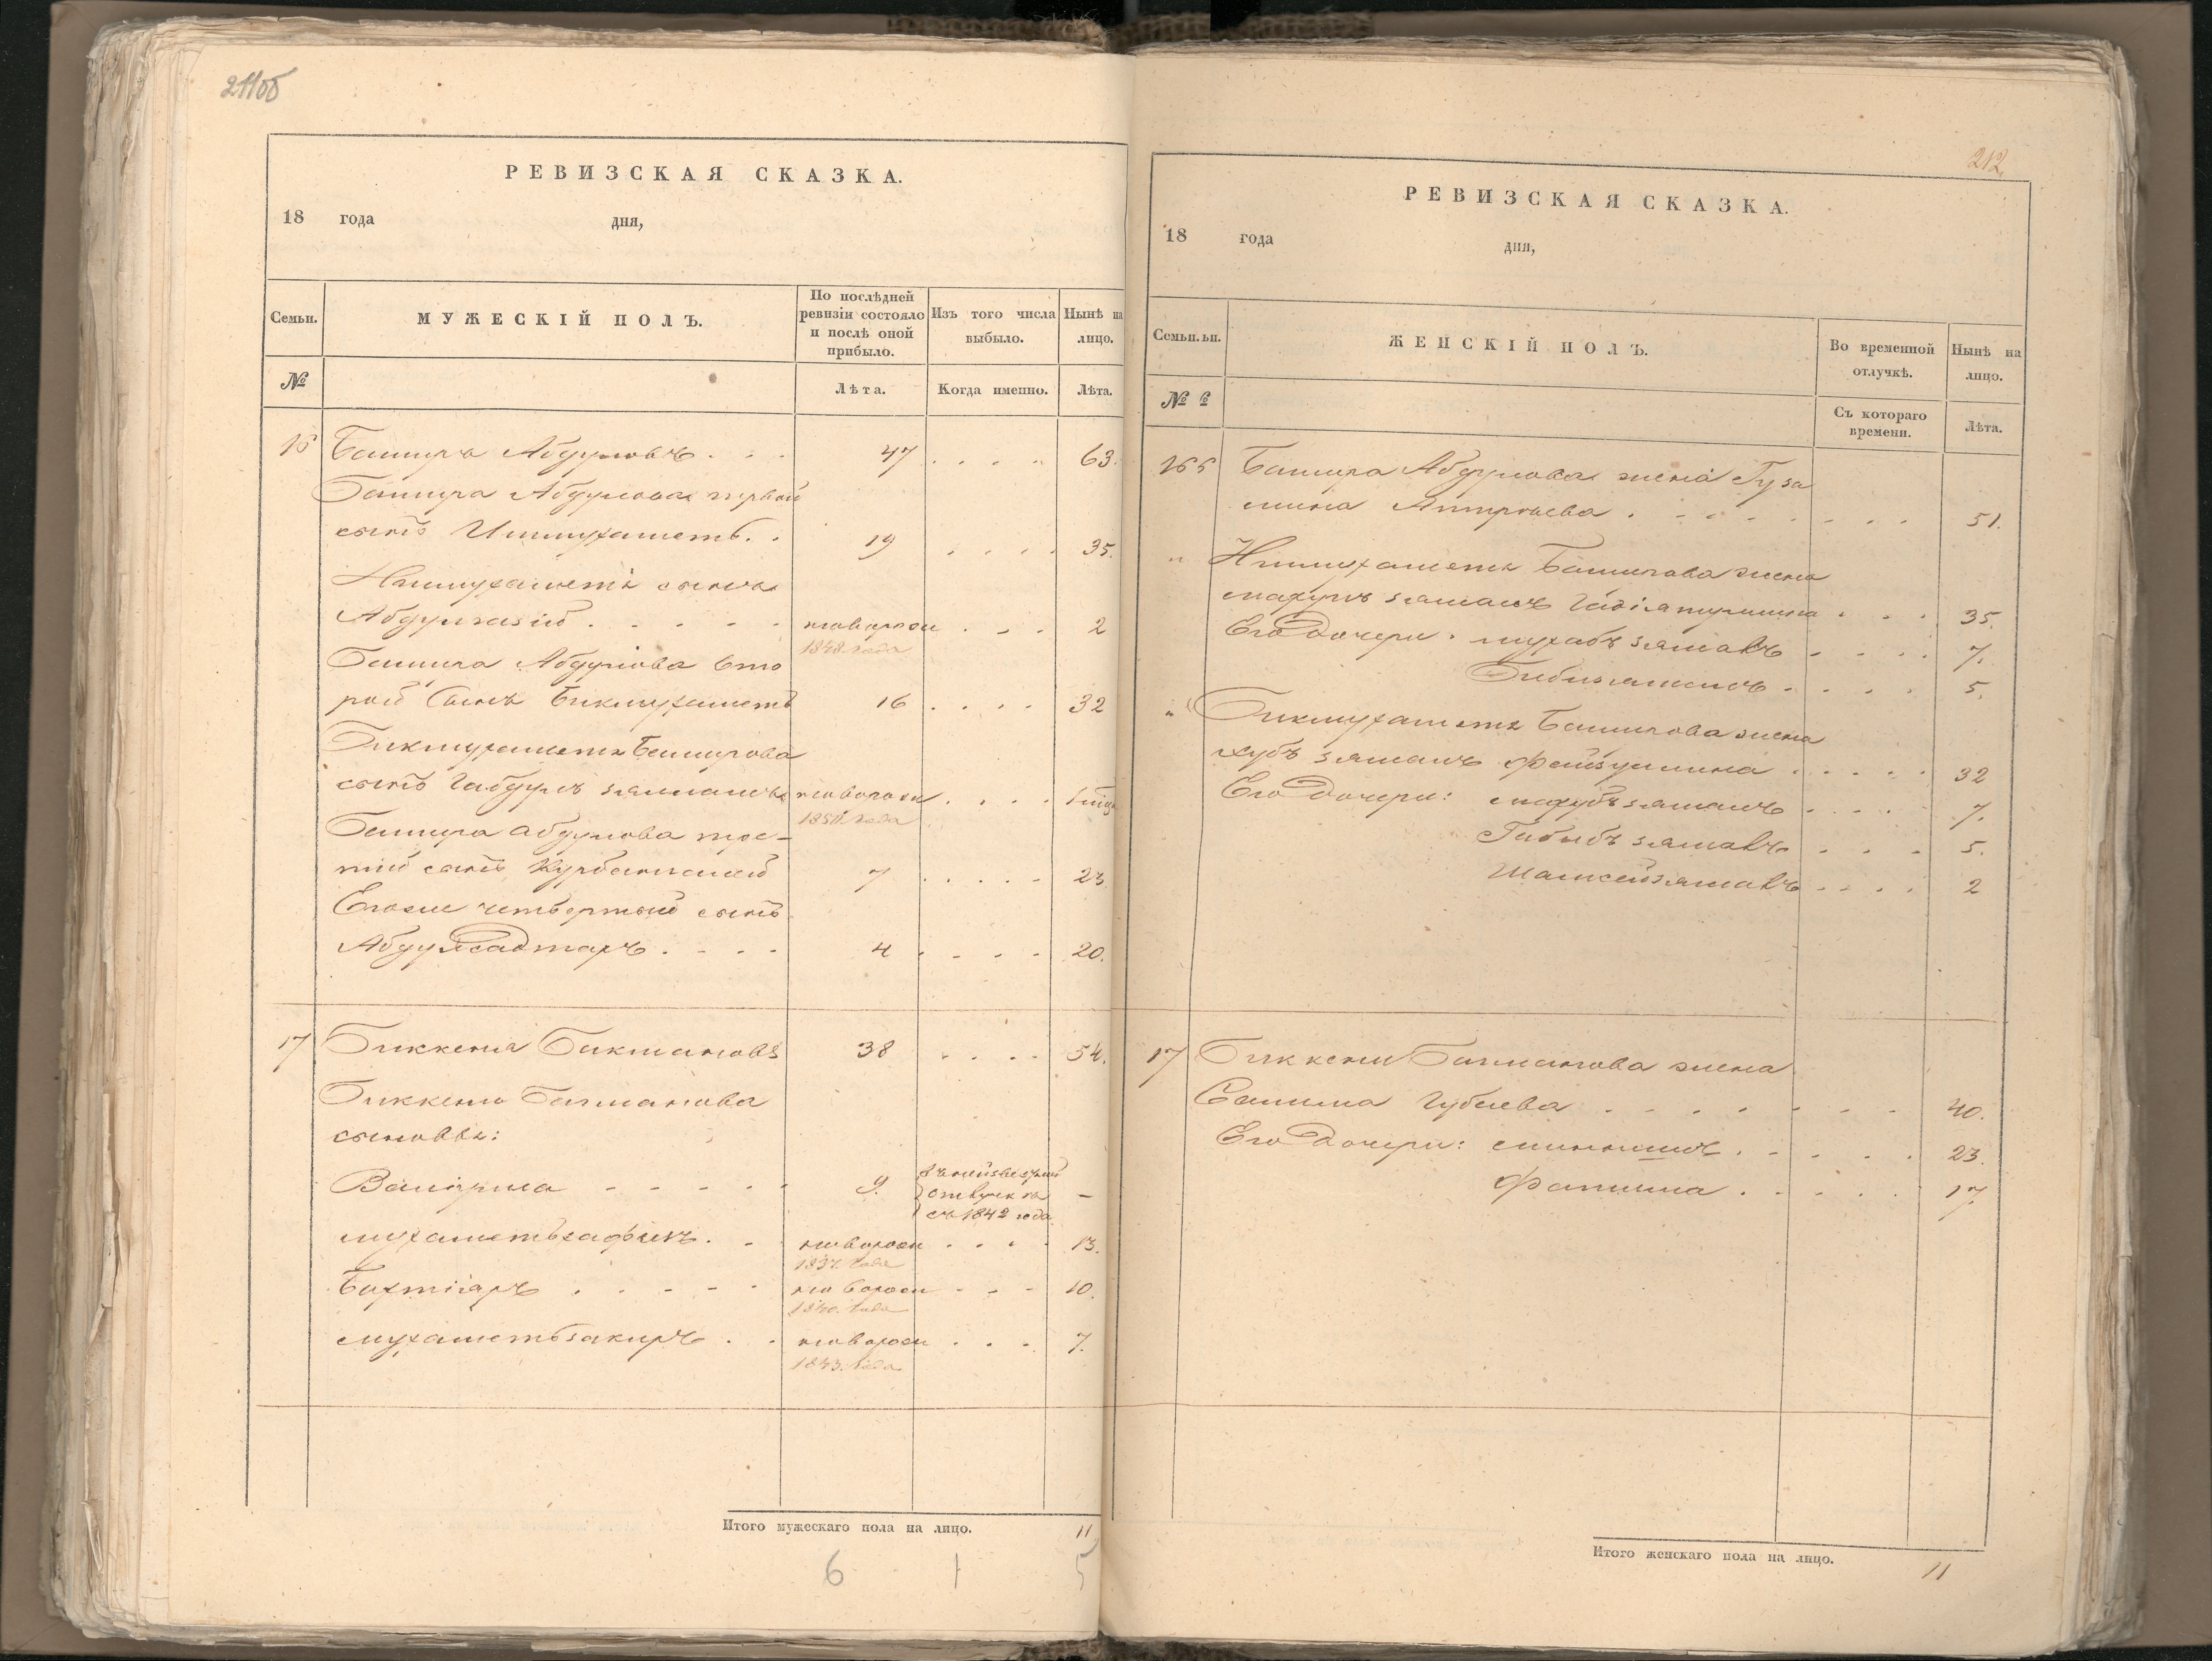 211об
РЕВИЗСКАЯ СКАЗКА.
18 года дня,
Семьи. МУЖЕСКІЙ ПОЛЪ. По послѣдней ревизіи состояло и послѣ оной прибыло. Изъ того числа выбыло. Нынѣ на лицо.
№ Лѣта. Когда именно. Лѣта.
16 Башира Абдуловъ . . . 47 . . . . 63.
Башира Абдулова первой
сынъ Ишмухаметь . . 19 . . . . 35.
Ишмухаметя сынъ
Абдулгазій . . . . . новорожден . . . 2
1848. года
Башира Абдулова вто
рой сынъ Бикмухаметь 16 . . . . 32
Бикмухаметя Баширова
сынъ Габдулъ зямановъ новорожден . . . .
1850. года
Башира Абдулова тре-
тий сынъ Курбангалей 7 . . . . . 23.
Егоже четвертый сынъ
Абдулсадтаръ . . . . 4 . . . . 20.
17 Биккеня Бикмановъ 38 . . . . 54.
Биккеню Бигманова
сыновья:
9. въ неизвестной
отлучкѣ –
съ 1842 года
Мухаметьсафикъ . . новорожден . . . . 13.
1837. года
Бахтіяръ . . . . . новорожден . . . 10.
1840. года
Мухаметьзакиръ . . новорожден . . . 7.
1843. года
Итого мужескаго пола на лицо. 11
6 1 5
212.
РЕВИЗСКАЯ СКАЗКА.
18 года дня,
Семьи.ьи. ЖЕНСКІЙ ПОЛЪ. Во временной отлучкѣ. Нынѣ на лицо.
№ Съ котораго времени. Лѣта.
16 Башира Абдулова жена Гуза
мина . . . . . . . . 51.
" Ишмухаметя Баширова жена
. . . 35.
Его дочери: . . . . 7.
Бибизямалъ . . . . 5.
" Бикмухаметя Баширова жена
хубъ зямалъ Файзулина . . . . . 32
Его дочери: махубзямалъ . . . . 7.
. . . 5.
Шамсейзямалъ . . . . 2
17 Биккени Бигманова жена
Салима Губаева . . . . . . . . 40.
Его дочери: . . . . . 23.
Фатима . . . . . 17.
Итого женскаго пола на лицо. 11